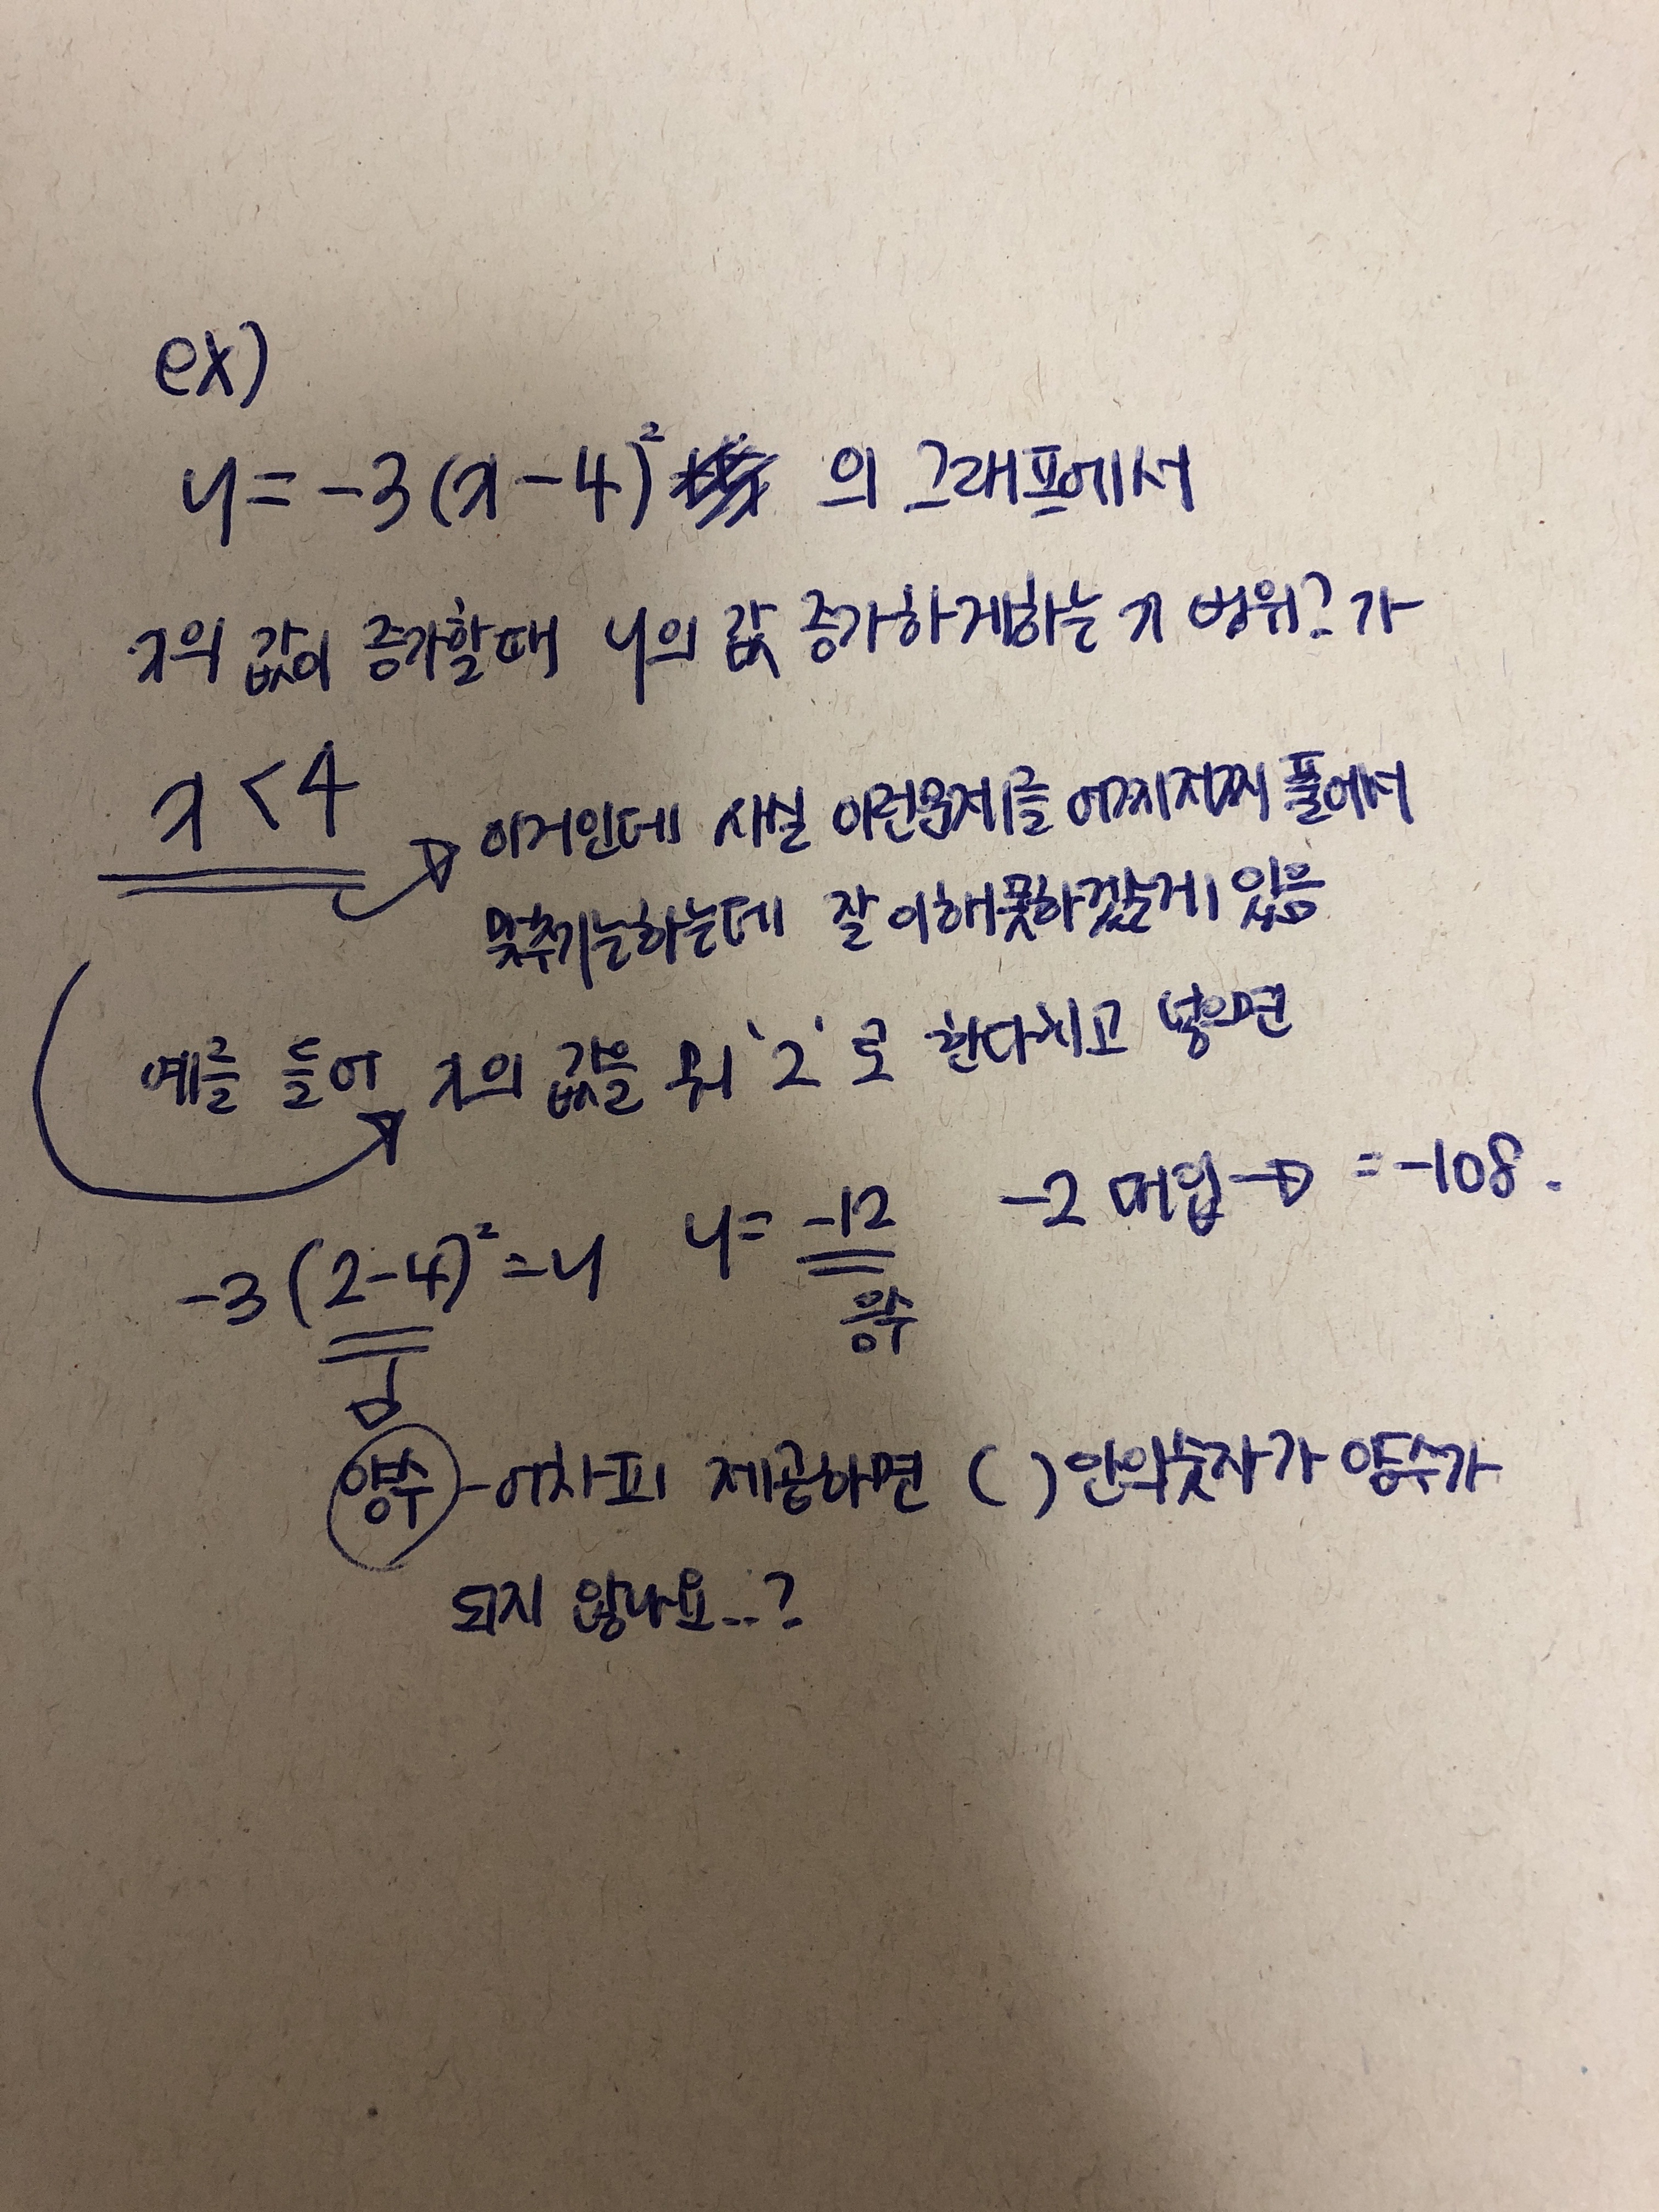 ex)
y = -3(x-4)² 의 그래프에서
x의 값이 증가할때 y의 값 증가하게하는 x 범위? 가
x < 4
이거인데 사실 이런문제를 어찌저찌 풀어서
맞추기는하는데 잘 이해못하겠는게 있음
예를 들어 x의 값을 뭐 '2'로 한다치고 넣으면
-3(2-4)² = y y = -12 -2 대입 → = -108.
음수
양수 - 어차피 제곱하면 ( ) 안의숫자가 양수가
되지 않나요..?